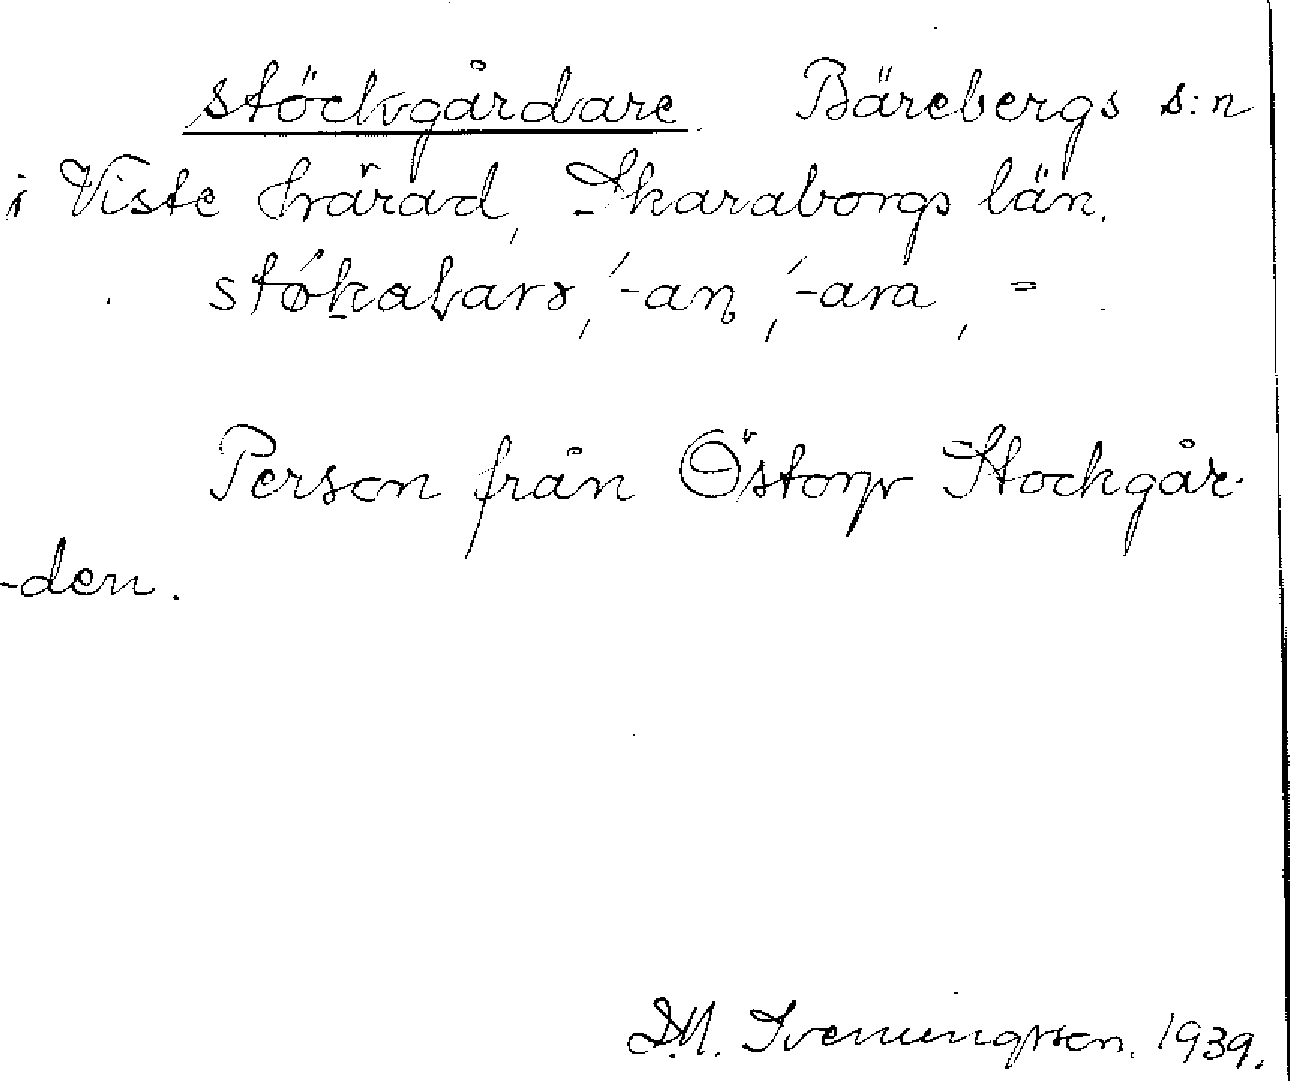 stöckgårdare Bärebergs s:n
i Viste härad, Skaraborgs län.
-an, -ara, =
Person från Östorp Stockgår-
-den.
D.M. Svenningsson. 1939.